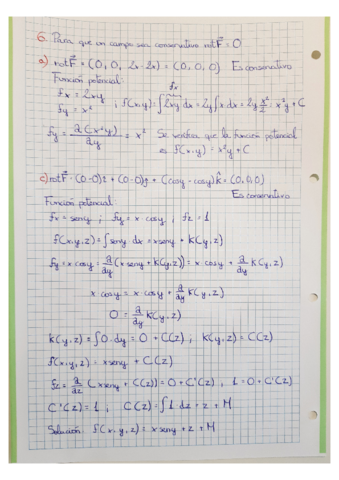 6. Para que un campo sea conservativo rot F⃗ = 0
a) rot F⃗ = (0, 0, 2x - 2x) = (0, 0, 0) Es conservativo
Función potencial:
fx = 2xy
fy = x² ; f(x,y) = ∫ 2xy dx = 2y ∫ x dx = 2y x²/2 = x²y + C
fx
fy = ∂(x²y)/∂y = x² Se verifica que la función potencial
es f(x,y) = x²y + C
c) rot F⃗ = (0-0)i + (0-0)j + (cos y - cos y) k̂ = (0,0,0)
Es conservativo
Función potencial:
fx = sen y ; fy = x cos y ; fz = 1
f(x,y,z) = ∫ sen y dx = x sen y + K(y,z)
fy = x cos y = ∂/∂y (x sen y + K(y,z)) = x cos y + ∂/∂y K(y,z)
x cos y = x cos y + ∂/∂y K(y,z)
0 = ∂/∂y K(y,z)
K(y,z) = ∫ 0 · dy = 0 + C(z) ; K(y,z) = C(z)
f(x,y,z) = x sen y + C(z)
fz = ∂/∂z (x sen y + C(z)) = 0 + C'(z) ; 1 = 0 + C'(z)
C'(z) = 1 ; C(z) = ∫ 1 · dz = z + M
Solución: f(x,y,z) = x sen y + z + M